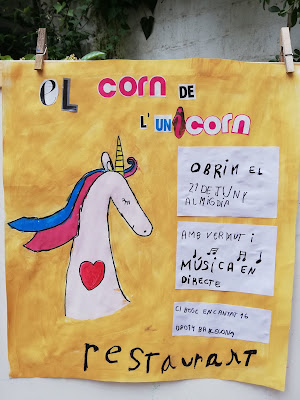 eL corn DE
L'UNicorn
OBRIM EL
21 DE JUNY
AL MIGDIA
AMB VERMUT I
MÚSICA EN
DIRECTE
C/ BOSC ENCANTAT 16
BARCELONA
restaurant